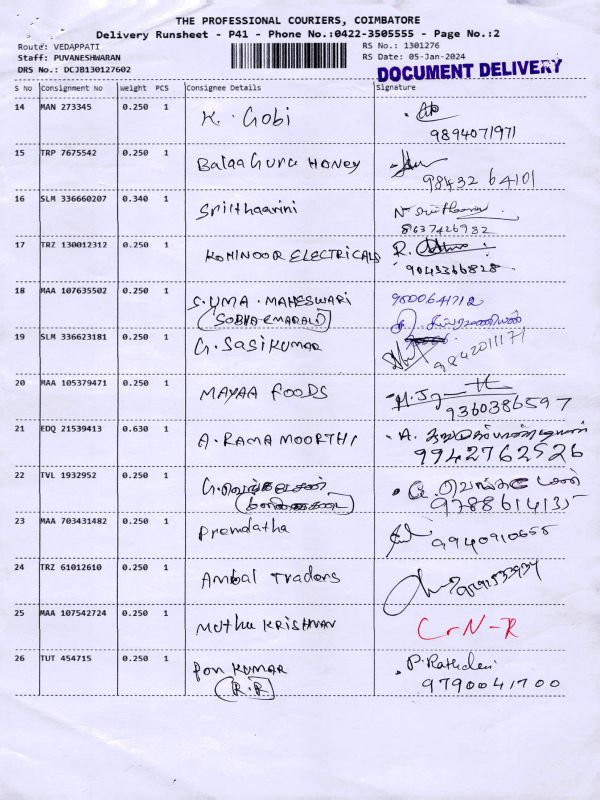 THE PROFESSIONAL COURIERS, COIMBATORE
Delivery Runsheet - P41 - Phone No.:0422-3505555 - Page No.:2
Route: VEDAPPATI RS No.: 1301276
Staff: PUVANESHWARAN RS Date: 05-Jan-2024
DRS No.: DCJB130127602 DOCUMENT DELIVERY
S No Consignment No Weight PCS Consignee Details Signature
14 MAN 273345 0.250 1 K. Gobi
9894071971
15 TRP 7675542 0.250 1 Balaa Guru Honey
98432 64101
16 SLM 336660207 0.340 1 Sriithaarini
8637426982
17 TRZ 130012312 0.250 1 KOHINOOR ELECTRICALS R.
9043366828
18 MAA 107635502 0.250 1 S. UMA. MAHESWARI 9500641712
(SOBHA EMARALD)
19 SLM 336623181 0.250 1 G. SASIKUMAR 9842011171
20 MAA 105379471 0.250 1 MAYAA FOODS
9360386597
21 EDQ 21539413 0.630 1 A. RAMA MOORTHI A.
9942762526
22 TVL 1932952 0.250 1 G. வெங்கடேசன்
9788614135
23 MAA 703431482 0.250 1 Premlatha
9940910658
24 TRZ 61012610 0.250 1 Ambal Traders
25 MAA 107542724 0.250 1 MUTHU KRISHNAN C-N-R
26 TUT 454715 0.250 1 Pon KUMAR P. Rathidevi
(R.R) 9790041700